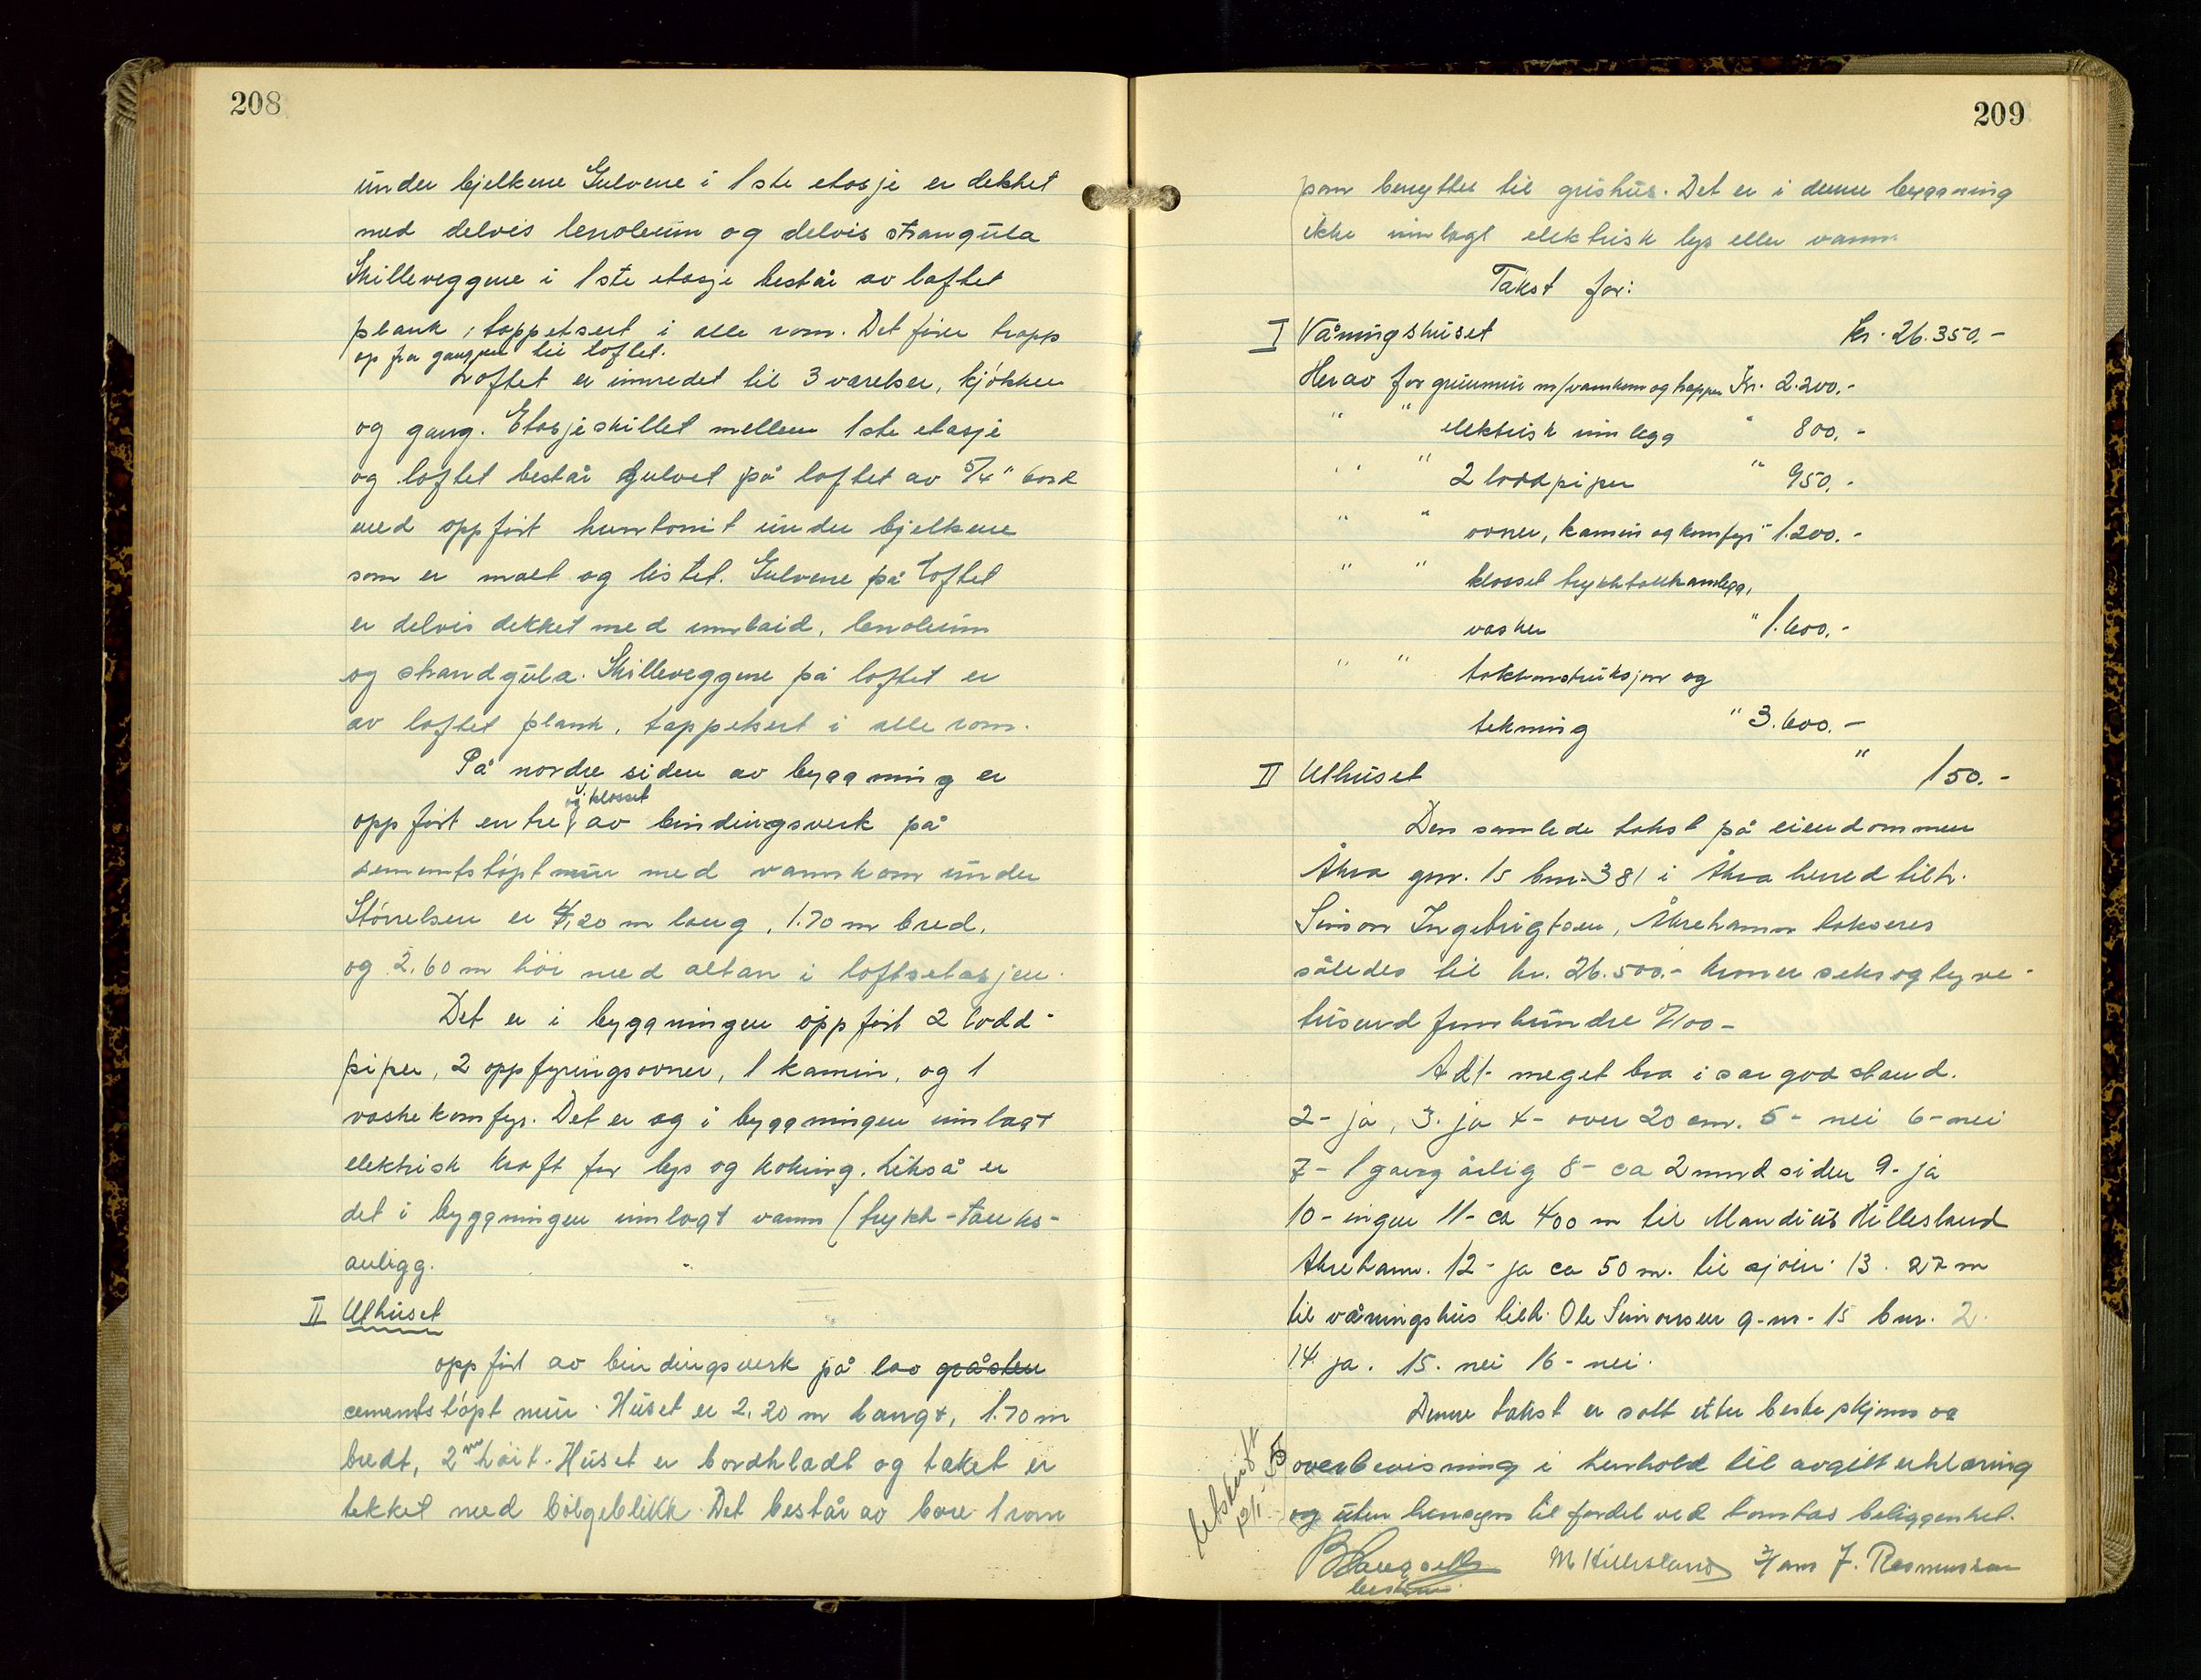 208
under bjelkene Gulvene i 1ste etasje er dekket
med delvis lenoleum og delvis strangula
Skilleveggene i 1ste etasje består av loftet
plank, tappetsert i alle rom. Det fører trapp
op fra gangen til loftet.
Loftet er innredet til 3 værelser, kjøkken
og gang. Etasjeskillet mellem 1ste etasje
og loftet består gulvet på loftet av 5/4" bord
med oppført huntonit under bjelkene
som er malt og listet. Gulvene på loftet
er delvis dekket med innlaid, lenoleum
og strandgula. Skilleveggene på loftet er
av loftet plank, tappetsert i alle rom.
På nordre siden av byggning er
og klosset
oppført entre av bindingsverk på
sementstøpt mur med vannkom under
Størrelsen er 4,20 m lang, 1.70 m bred,
og 2.60 m høi med altan i loftsetasjen.
Det er i byggningen oppført 2 lodd-
piper, 2 oppfyringsovner, 1 kamin, og 1
vaskekomfyr. Det er og i byggningen innlagt
elektrisk kraft for lys og koking. Likså er
det i byggningen innlagt vann (trykk-tanks-
anlegg.
II Uthuset
oppført av bindingsverk på lav gråsten
cementstøpt mur. Huset er 2.20 m langt, 1.70 m
bredt, 2 m høit. Huset er bordkladt og taket er
tekket med bølgeblikk. Det består av bare 1 rom
209
som benyttes til grishus. Det er i denne byggning
ikke innlagt elektrisk lys eller vann.
Takst for:
I Våningshuset kr. 26.350.-
Herav for grunmur m/vannkom og trapper Kr. 2.200.-
" " elektrisk innlegg " 800.-
" " 2 loddpiper " 950.-
" " ovner, kamin og komfyr " 1.200.-
" " klosset trykktankanlegg,
vasker " 1.600.-
" " takkonstruksjon og
tekning " 3.600.-
II Uthuset " 150.-
Den samlede takst på eiendommen
Åkra gnr. 15 bnr. 381 i Åkra herred tilh.
Simon Ingebrigtsen, Åkrehamn takseres
således til kr. 26.500.- kroner seksogtyve-
tusend femhundre 0/100-
Ad 1- meget bra i sær god stand.
2- ja, 3. ja 4- over 20 cm. 5- nei 6- nei
7- 1 gang årlig 8- ca 2 mnd siden 9- ja
10- ingen 11- ca 400 m til Mandius Hillesland
Åkrehamn. 12- ja ca 50 m. til sjøen. 13. 27 m
til våningshus tilh. Ole Simonsen g.nr. 15 bnr. 2.
14. ja. 15. nei 16- nei.
Denne takst er satt etter beste skjønn og
overbevisning i henhold til avgitt erklæring
og uten hensyn til fordel ved tomtas beliggenhet.
Utskrift
M Hillesland Hans J. Rasmussen